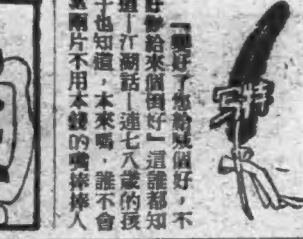 『唱好了您給喊個好，不
好您給來個倒好』這誰都知
道—江湖話—連七八歲的孩
子也知道，本來嗎，誰不會
兩片不用本錢的嘴捧捧人
特写